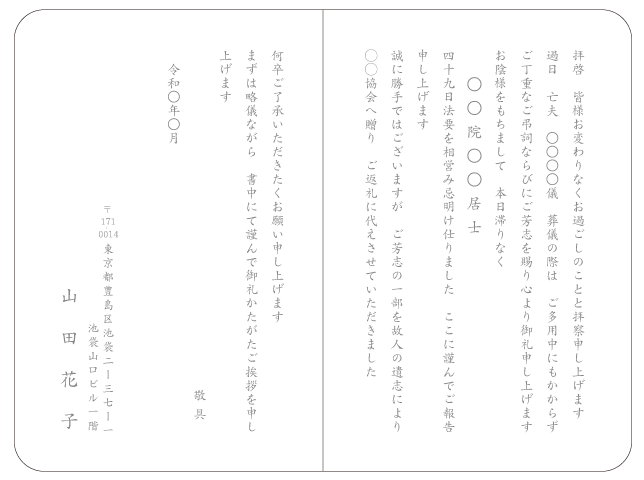 拝啓　皆様お変わりなくお過ごしのことと拝察申し上げます
過日　亡夫　〇〇〇〇儀　葬儀の際は　ご多用中にもかからず
ご丁重なご弔詞ならびにご芳志を賜り心より御礼申し上げます
お陰様をもちまして　本日滞りなく
〇〇院〇〇居士
四十九日法要を相営み忌明け仕りました　ここに謹んでご報告
申し上げます
誠に勝手ではございますが　ご芳志の一部を故人の遺志により
〇〇協会へ贈り　ご返礼に代えさせていただきました
何卒ご了承いただきたくお願い申し上げます
まずは略儀ながら　書中にて謹んで御礼かたがたご挨拶を申し
上げます
敬具
令和〇年〇月
〒171 0014 東京都豊島区池袋二ー三七ー一
池袋山口ビル一階
山田花子